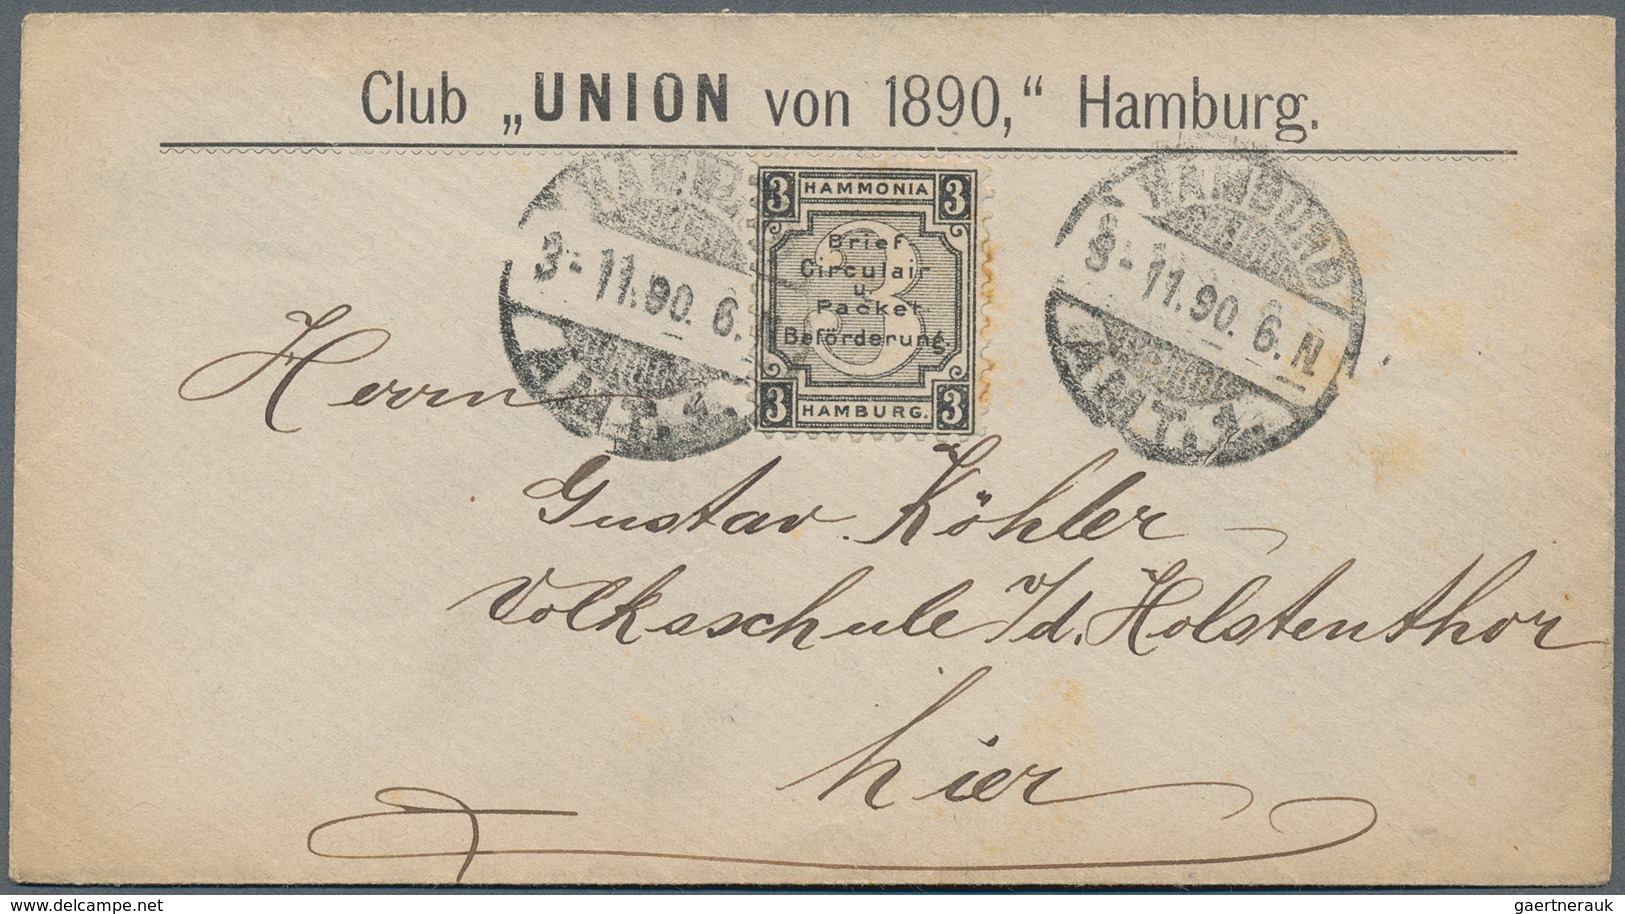 Club „UNION von 1890,“ Hamburg.
3 HAMMONIA 3
Brief
Circulair
u.
Packet
Beförderung.
3 HAMBURG. 3
3
3-11.90. 6.
HAMBURG
3-11.90. 6.N
AMT. 1.
Herrn
Gustav Köhler
Volksschule v/d. Holstenthor
hier
delcampe.net
gaertnerauk